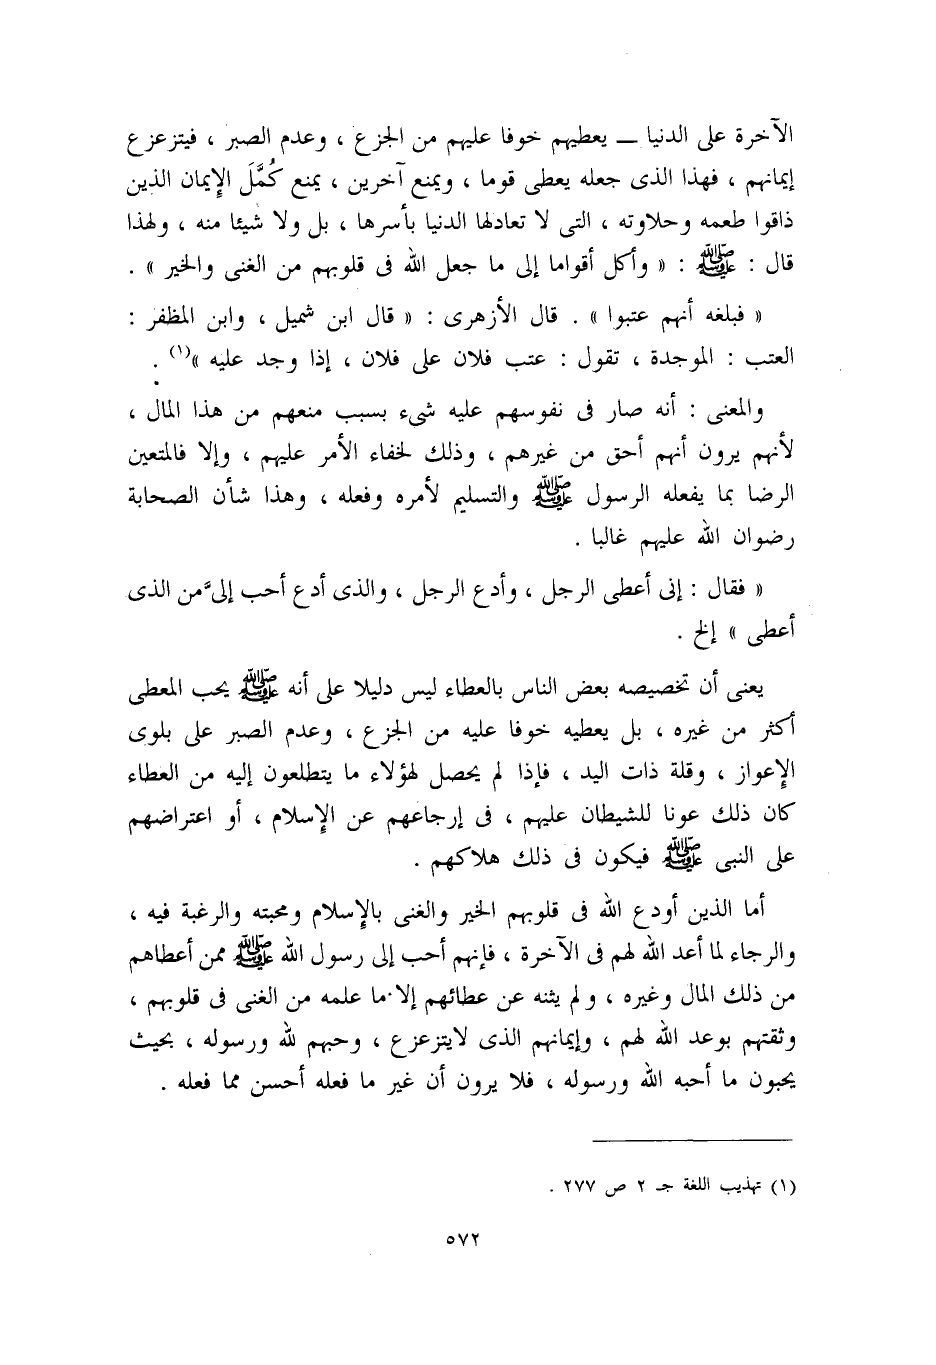 الآخرة على الدنيا ــ يعطيهم خوفا عليهم من الجزع ، وعدم الصبر ، فيتزعزع
إيمانهم ، فهذا الذى جعله يعطى قوما ، ويمنع آخرين ، يمنع كُمَّلَ الإيمان الذين
ذاقوا طعمه وحلاوته ، التى لا تعادلها الدنيا بأسرها ، بل ولا شيئا منه ، ولهذا
قال : ﷺ : « وأكل أقواما إلى ما جعل الله فى قلوبهم من الغنى والخير » .
« فبلغه أنهم عتبوا » . قال الأزهرى : « قال ابن شميل ، وابن المظفر :
العتب : الموجدة ، تقول : عتب فلان على فلان ، إذا وجد عليه »(١) .
والمعنى : أنه صار فى نفوسهم عليه شىء بسبب منعهم من هذا المال ،
لأنهم يرون أنهم أحق من غيرهم ، وذلك لخفاء الأمر عليهم ، وإلا فالمتعين
الرضا بما يفعله الرسول ﷺ والتسليم لأمره وفعله ، وهذا شأن الصحابة
رضوان الله عليهم غالبا .
« فقال : إنى أعطى الرجل ، وأدع الرجل ، والذى أدع أحب إلىَّ من الذى
أعطى » إلخ .
يعنى أن تخصيصه بعض الناس بالعطاء ليس دليلا على أنه ﷺ يحب المعطى
أكثر من غيره ، بل يعطيه خوفا عليه من الجزع ، وعدم الصبر على بلوى
الإعواز ، وقلة ذات اليد ، فإذا لم يحصل لهؤلاء ما يتطلعون إليه من العطاء
كان ذلك عونا للشيطان عليهم ، فى إرجاعهم عن الإسلام ، أو اعتراضهم
على النبى ﷺ فيكون فى ذلك هلاكهم .
أما الذين أودع الله فى قلوبهم الخير والغنى بالإسلام ومحبته والرغبة فيه ،
والرجاء لما أعد الله لهم فى الآخرة ، فإنهم أحب إلى رسول الله ﷺ ممن أعطاهم
من ذلك المال وغيره ، ولم يثنه عن عطائهم إلا ما علمه من الغنى فى قلوبهم ،
وثقتهم بوعد الله لهم ، وإيمانهم الذى لايتزعزع ، وحبهم لله ورسوله ، بحيث
يحبون ما أحبه الله ورسوله ، فلا يرون أن غير ما فعله أحسن مما فعله .
(١) تهذيب اللغة جـ ٢ ص ٢٧٧ .
٥٧٢